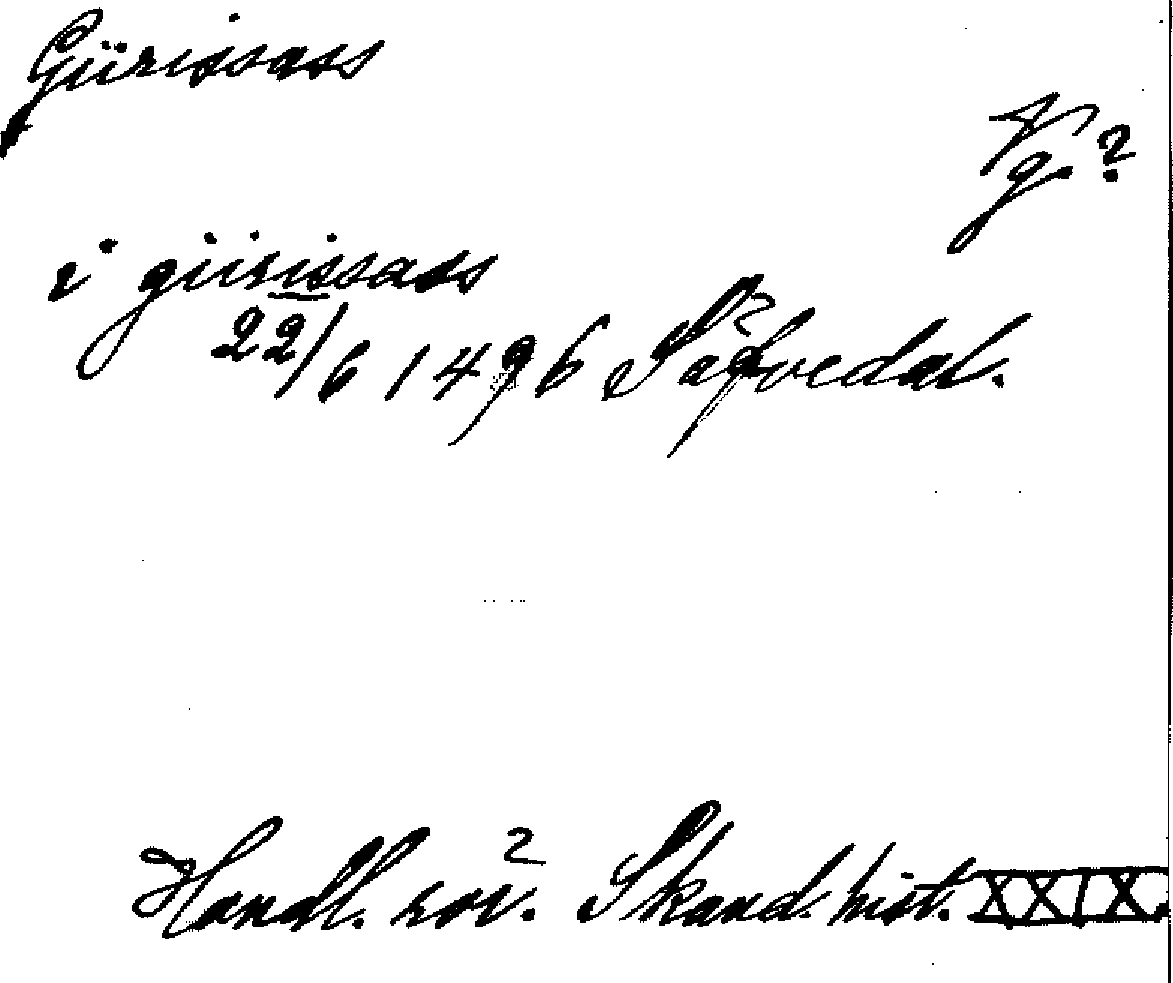 Gürissass
Vg.?
i gürissass
22/6 1496 Säfvedal.
Handl. rör. Skand. hist. XXIX.